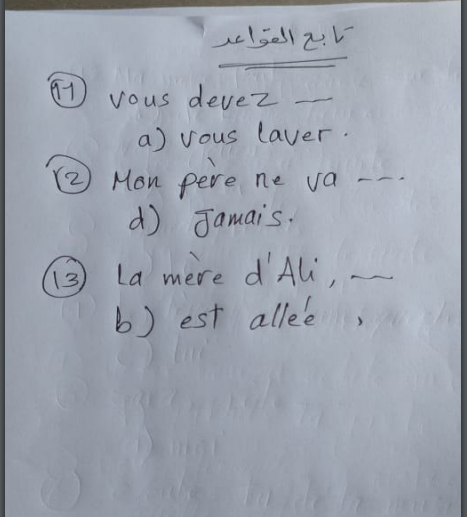 تابع القواعد
11 vous devez —
a) vous laver.
12 Mon père ne va ---.
d) Jamais.
13 La mère d'Ali, —
b) est alleé ,